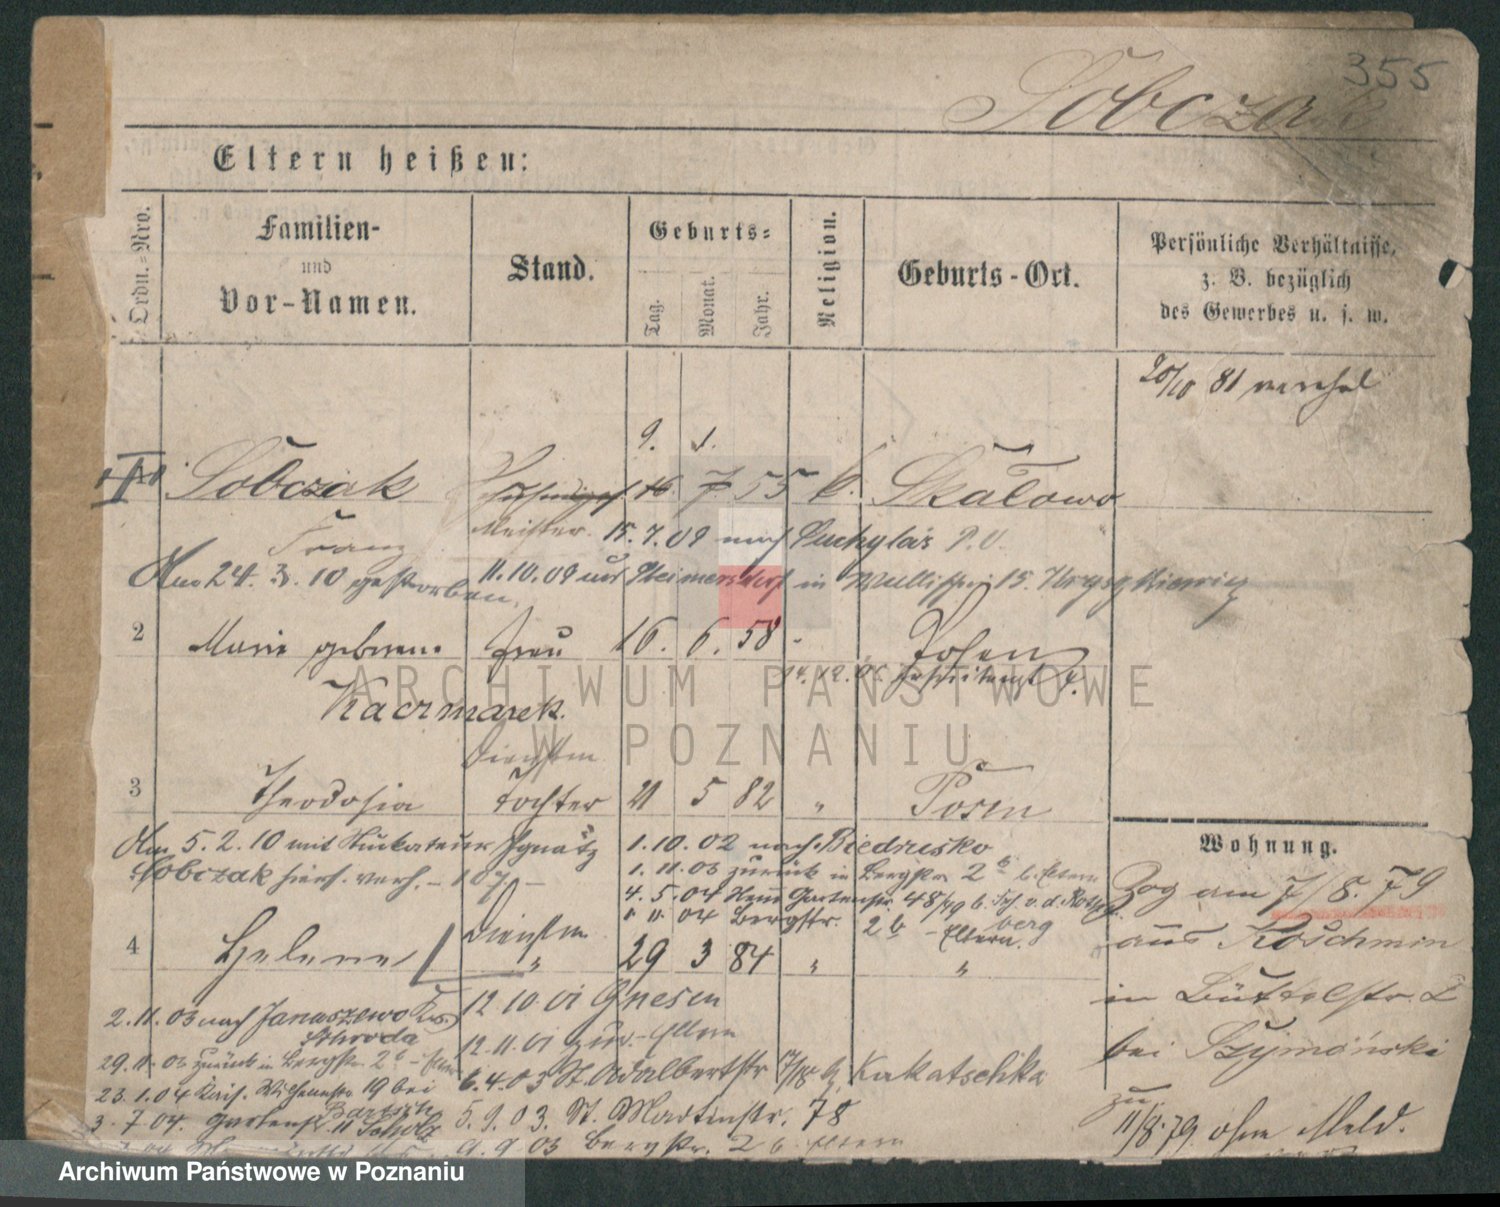 355
Sobczak
Eltern heißen:
Ordn.-Nro.
Familien-
und
Vor-Namen.
Stand.
Geburts-
Tag.
Monat.
Jahr.
Religion.
Geburts-Ort.
Persönliche Verhältnisse,
z. B. bezüglich
des Gewerbes u. s. w.
20/10 81
9. 1.
Sobczak 16. 7 55 k. Skałowo
Meister 15.7.09 nach Puchylas P.O.
Franz
Am 24. 3. 10 gestorben. 11.10.09 aus in 15.
2 Marie geborene Frau 16. 6. 58 - Posen
14.12.05
Kaczmarek.
Dienstm
3 Theodosia Tochter 21 5 82 " Posen
Am 5. 2. 10 mit Stuckateur Ignatz 1.10.02 nach Biedrusko
Sobczak hiers. verh. - 107 - 1.11.03 zurück in Bergstr 2b b. Eltern
4.5.04 Gartenstr. 48/49 b.
1.11.04 Bergstr. 2b - Eltern.
4 Helene Dienstm " 29 3 84 " "
12 10.01 Gnesen
2.11.03 nach Januszewo Krs.
Schroda
12.11.01 zur. Eltern
29.11.03 zurück in Bergstr 2b - Eltern
6.4.03 St. Adalbertstr 17/18 b. Kakatschka
23.1.04 Kais. Wilhelmstr 19 bei
Bartsch
5.9.03. St. Martinstr. 78
3.7.04. Gartenstr. 11 Scholz
9.9.03 Bergstr. 2 b. Eltern
Wohnung.
Zog am 7/8. 79
aus Koschmin
in Büttelstr. 2
bei Szymański
zu
11/8.79. ohne Meld.
ARCHIWUM PAŃSTWOWE
W POZNANIU
Archiwum Państwowe w Poznaniu